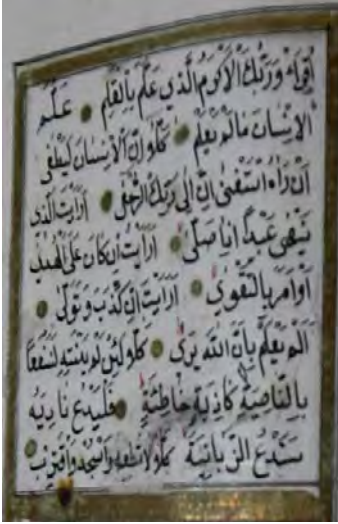 اِقْرَأْ وَرَبُّكَ الْاَكْرَمُ الَّذِي عَلَّمَ بِالْقَلَمِ عَلَّمَ
الْاِنْسَانَ مَالَمْ يَعْلَمْ كَلَّا اِنَّ الْاِنْسَانَ لَيَطْغٰى
اَنْ رَاٰهُ اسْتَغْنٰى اِنَّ اِلٰى رَبِّكَ الرُّجْعٰى اَرَاَيْتَ الَّذِى
يَنْهٰى عَبْدًا اِذَا صَلّٰى اَرَاَيْتَ اِنْ كَانَ عَلَى الْهُدٰىٓ
اَوْ اَمَرَ بِالتَّقْوٰى اَرَاَيْتَ اِنْ كَذَّبَ وَتَوَلّٰى
اَلَمْ يَعْلَمْ بِاَنَّ اللّٰهَ يَرٰى كَلَّا لَئِنْ لَمْ يَنْتَهِ لَنَسْفَعًا
بِالنَّاصِيَةِ نَاصِيَةٍ كَاذِبَةٍ خَاطِئَةٍ فَلْيَدْعُ نَادِيَهُ
سَنَدْعُ الزَّبَانِيَةَ كَلَّا لَا تُطِعْهُ وَاسْجُدْ وَاقْتَرِبْ